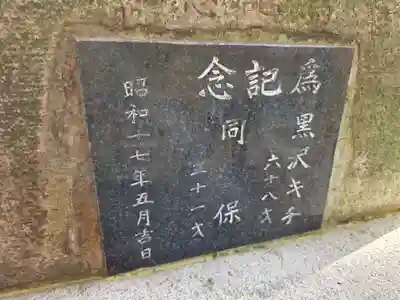 為黒沢キチ
六十八才
記念
同保
二十一才
昭和十七年五月吉日